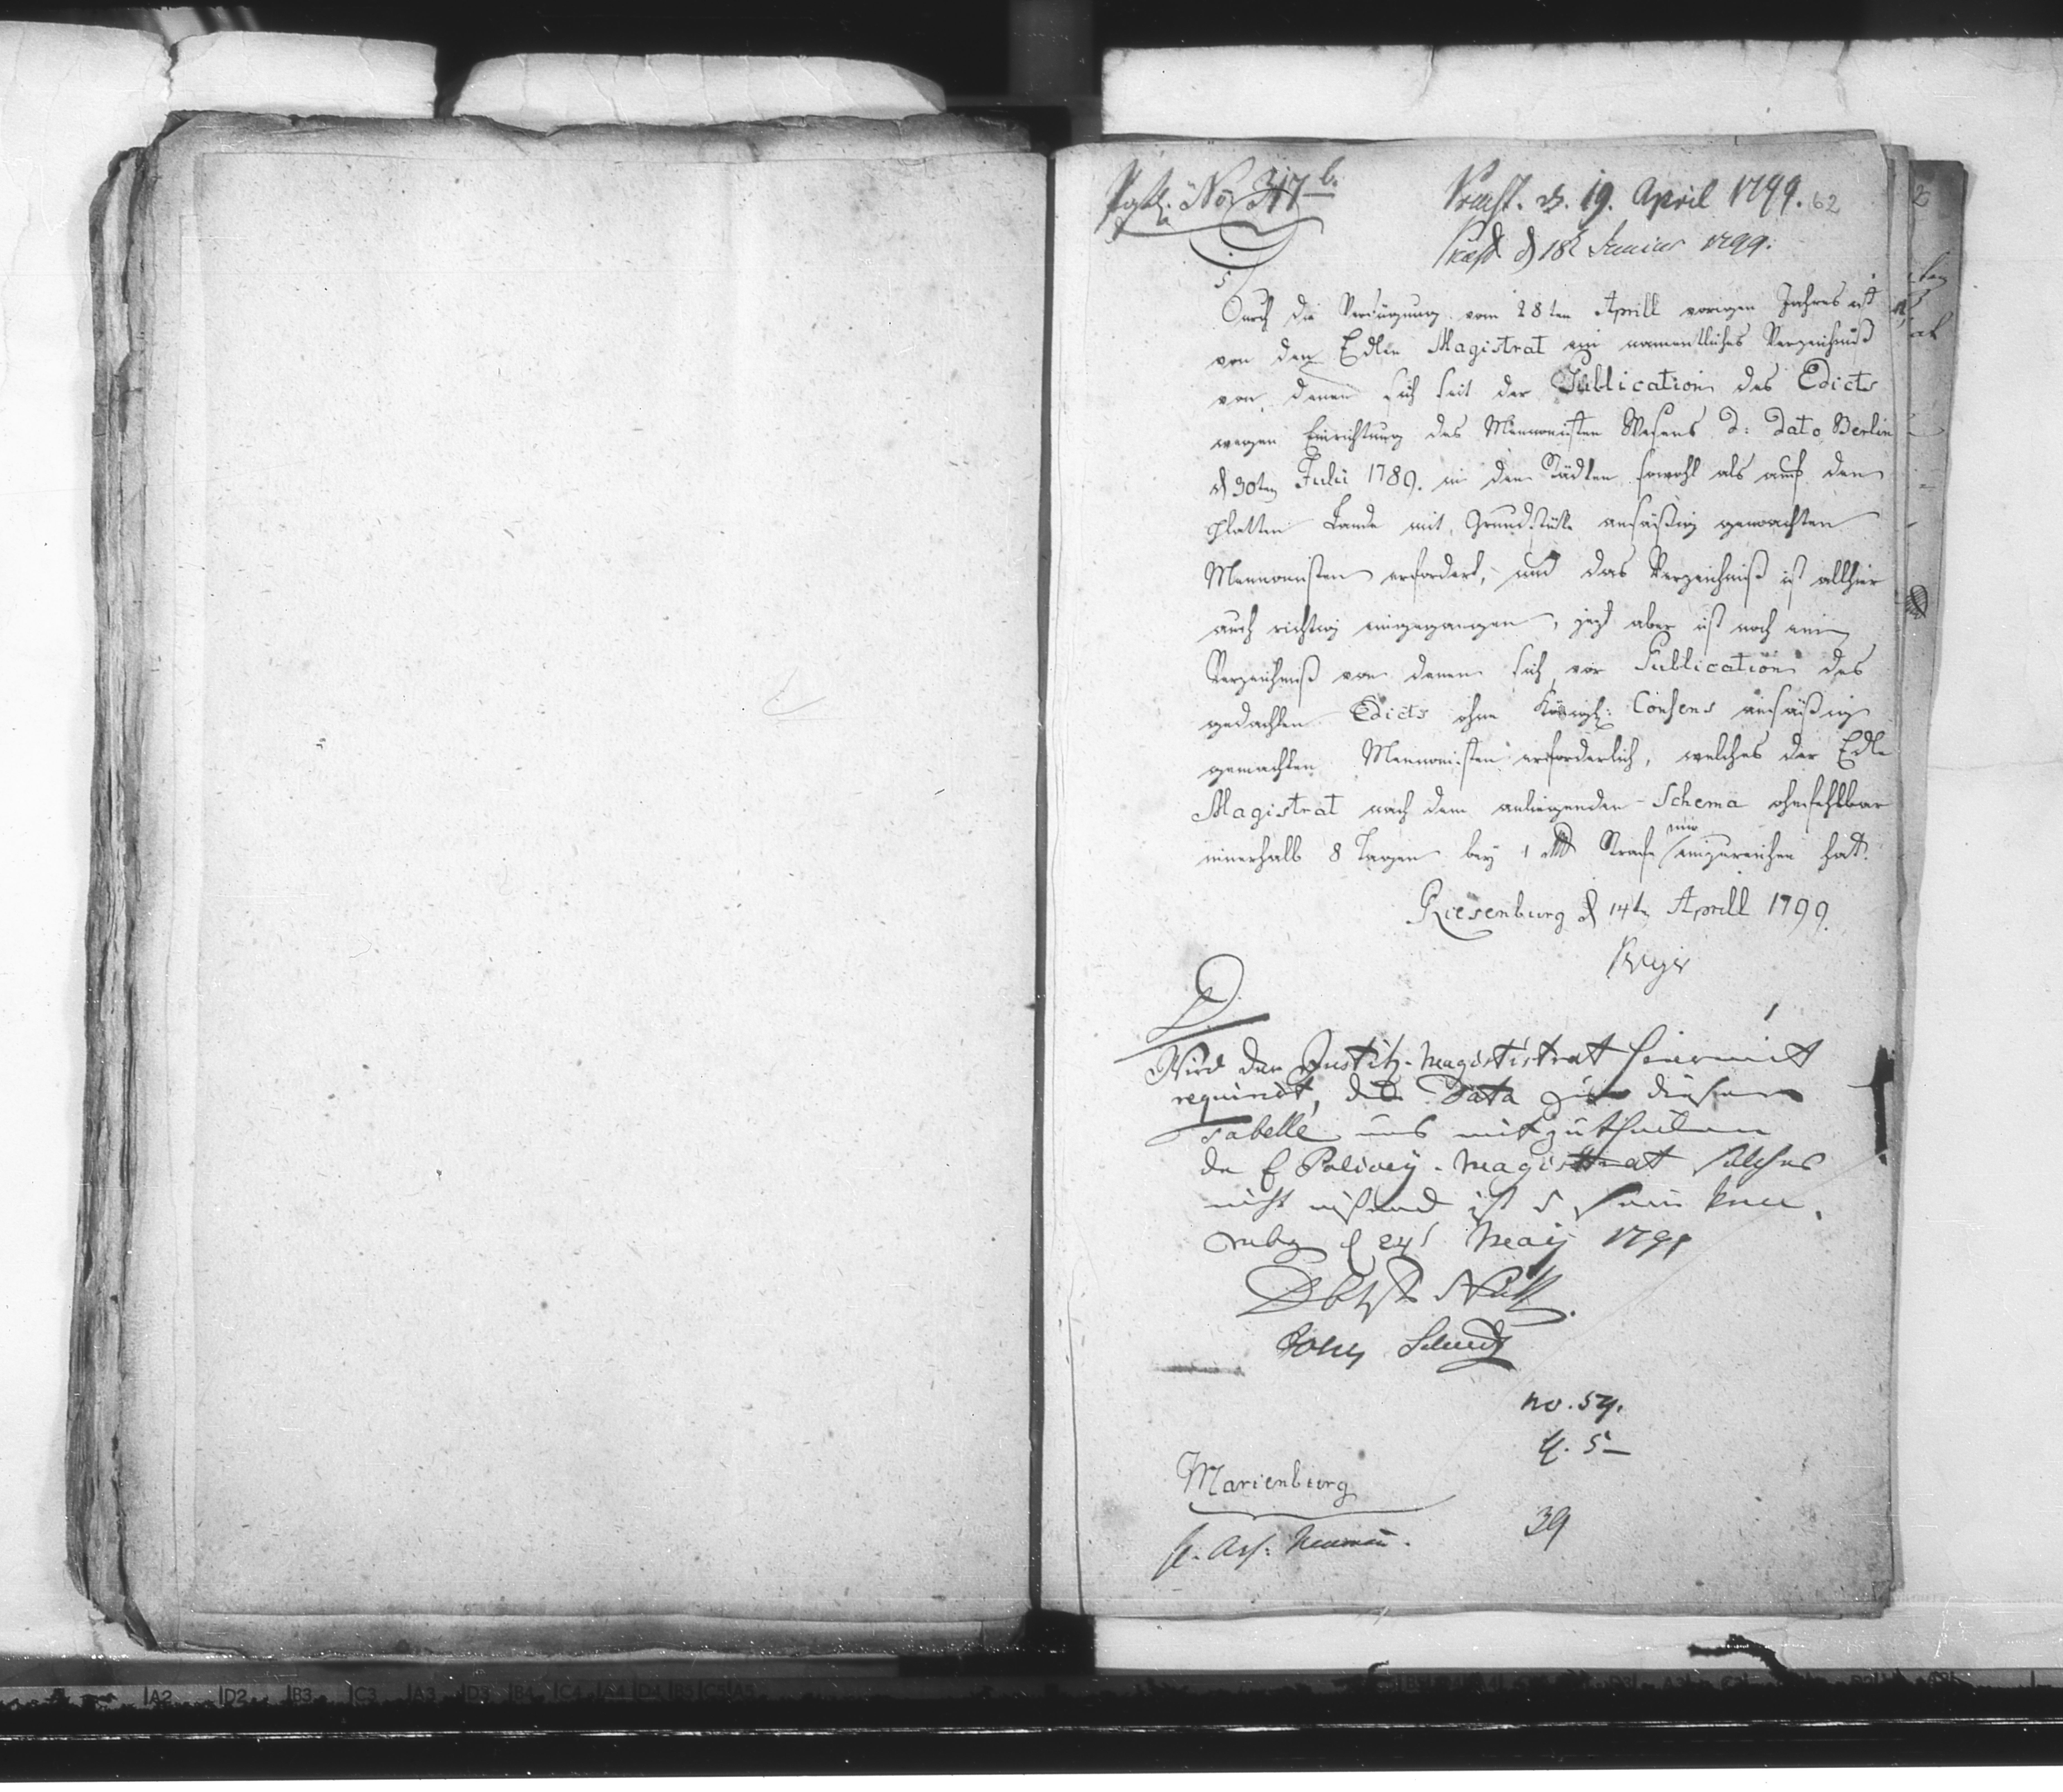 No 317 b.
Præst. d. 19. April 1799. 62
Præst d 18t Junius 1799.
Durch die Verfügung vom 28ten Aprill vorigen Jahres ist
von dem Edlen Magistrat ein namentliches Verzeichniß
von denen sich seit der Publication des Edicts
wegen Einrichtung des Mennonisten Wesens d: dato Berlin
d 30ten Julii 1789. in den Städten sowohl als auf dem
platten Lande mit Grundstücke ansäßig gemachten
Mennonisten erfordert, und das Verzeichniß ist allhier
auch richtig eingegangen, jezt aber ist noch ein
Verzeichniß von denen sich vor Publication des
gedachten Edicts ohne Königl: Consens ansäßig
gemachten Mennonisten erforderlich, welches der Edle
Magistrat nach dem anliegenden Schema ohnfehlbar
innerhalb 8 Tagen bey 1 Strafe mir einzureichen hat.
Riesenburg d 14ten Aprill 1799.
D.
Wird der Justitz-Magistrat hiermit
requirirt, die Data zu dieser
Tabelle uns mitzutheilen
da E Policey-Magistrat solches
nicht
d 24t Maij 1799
no. 59.
5
Marienburg
H. Ass: Neumann.
39